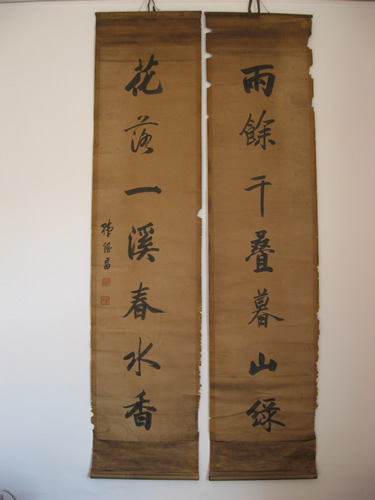 雨餘千叠暮山綠
花落一溪春水香